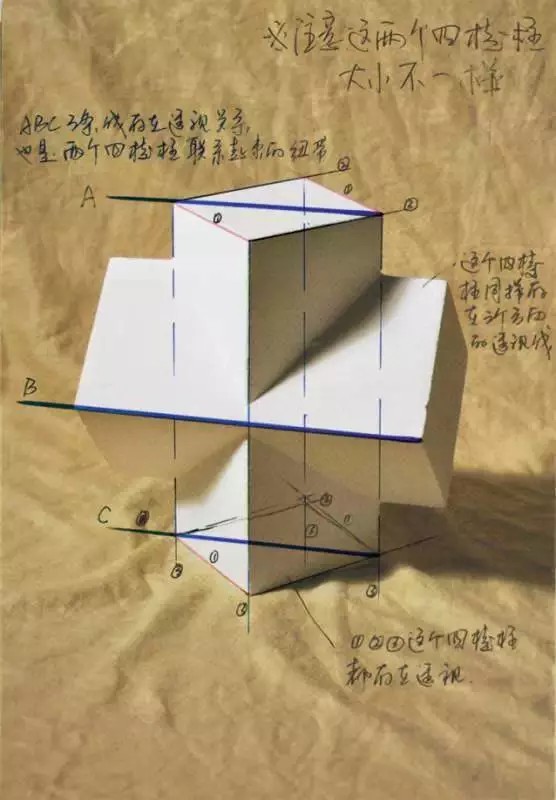 ※注意这两个四棱柱
大小不一样
ABC 3条线存在透视关系,
也是两个四棱柱联系起来的纽带
A
②
①
①
②
这个四棱
柱同样存
在3个方向
的透视线
B
C
②
①
③
①
③
③
③
①②③这个四棱柱
都存在透视.